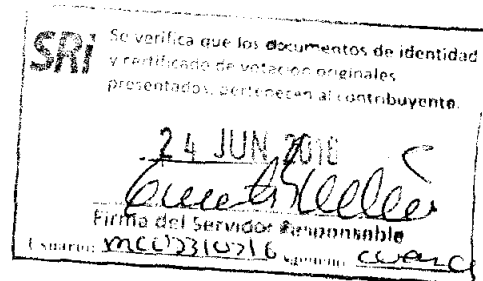 SRi
Se verifica que los documentos de identidad
y certificado de votación originales
presentados, pertenecen al contribuyente.
24 JUN
Firma del Servidor Responsable
Usuario: Agencia: